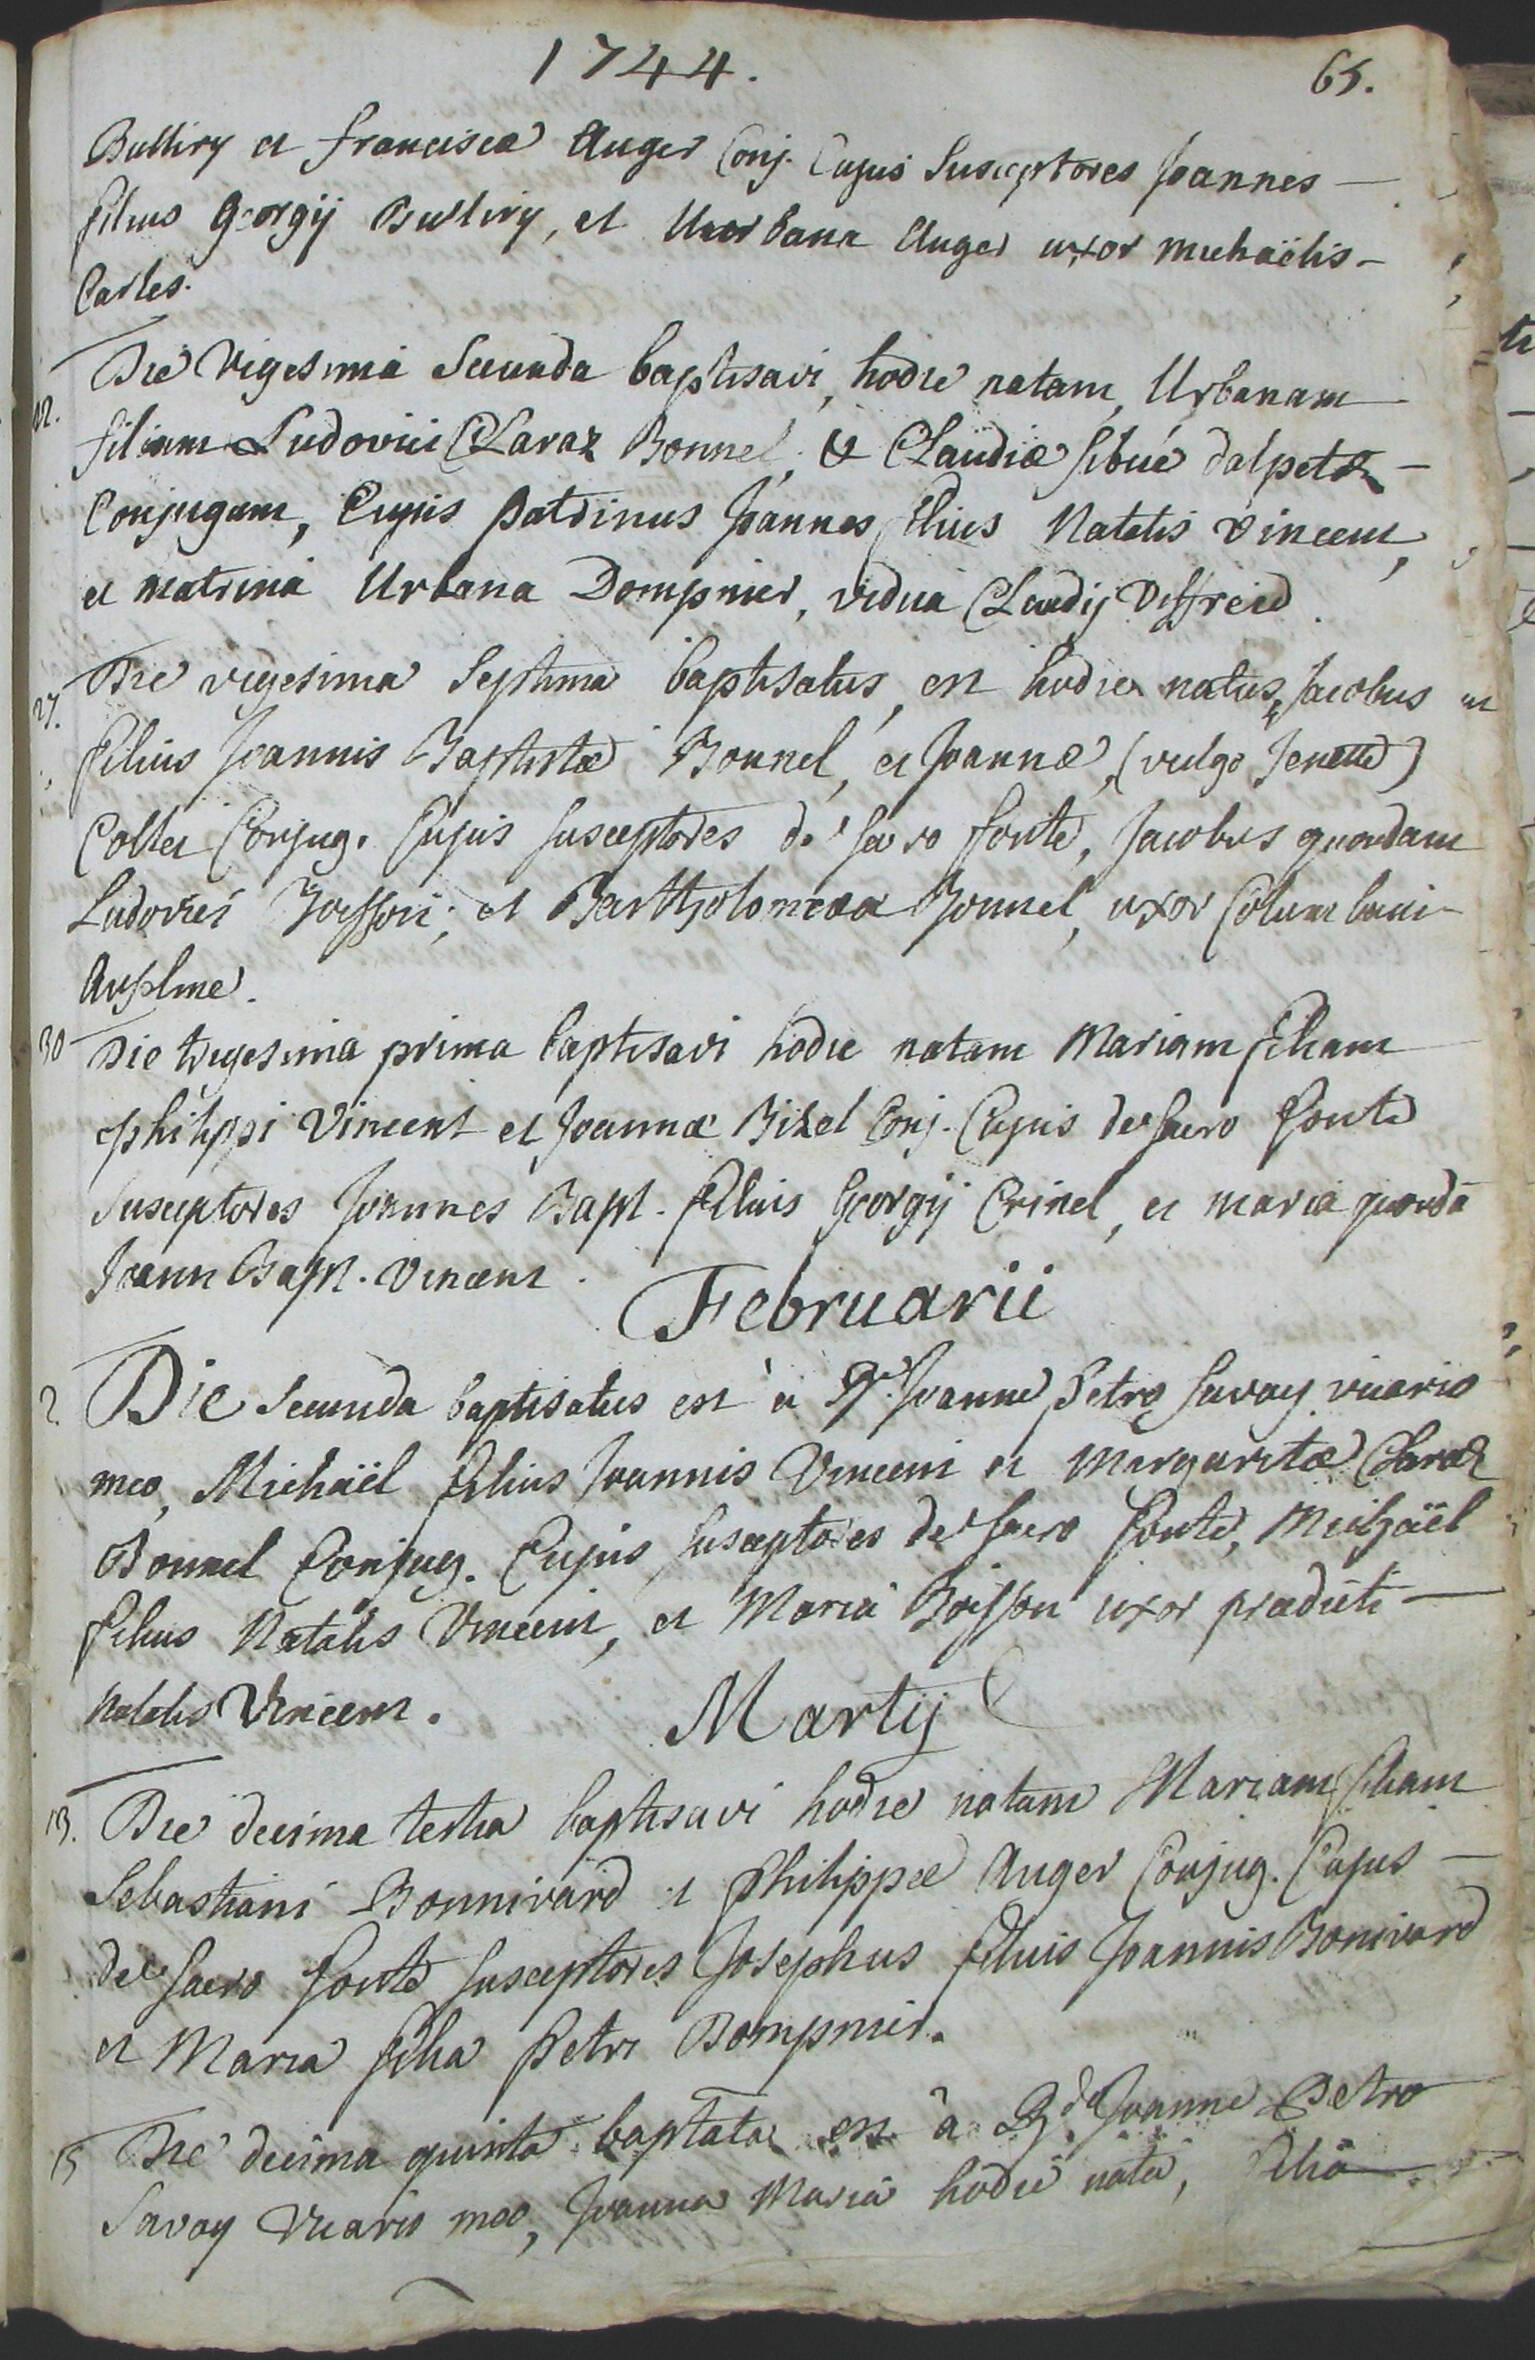 1744.
65.
Bulliry et francisca Auger Conj. Cujus Susceptores Joannes
filius Georgij Bulliry, et Urbana Auger uxor michaëlis
Carles.
22. Die Vigesima Secunda baptisavi, hodie natam, Urbanam
filiam Ludovici Claraz Bonnel, & Claudiæ sibué dalpetaz
Conjugum, Cujus patrinus Joannes filius Natalis Vincent,
et matrina Urbana Dompnier, vidua Claudij Deffreid.
27. Die vigesima Septima baptisatus, est hodie natus, Jacobus
filius Joannis Baptistæ Bonnel, et Joannæ, (vulgo Jenette)
Collet Conjug. Cujus susceptores de sacro fonte, Jacobus quondam
Ludovici Boisson; et Bartholomæa Bonnel, uxor Columbani
Anselme.
30 Die trigesima prima baptisavi hodie natam Mariam filiam
philippi Vincent et Joannæ Bizel Conj. Cujus de sacro fonte
susceptores Joannes Bapt. filius Georgij Crinel, et maria quondã
Joann Bapt. Vincent.
Februarii
2 Die Secunda baptisatus est à Rdo Joanne Petro Savoy vicario
meo, Michaël filius Joannis Vincent et Margaritæ Claraz
Bonnel Conjug. Cujus susceptores de sacro fonte, Michaël
filius Natalis Vincent, et Maria Boisson uxor prædicti
Natalis Vincent.
Martij
13. Die decima tertia baptisavi hodie natam Mariam filiam
Sebastiani Bonnivard et philippæ Auger Conjug. Cujus
de sacro fonte susceptores Josephus filius Joannis Bonivard
et Maria filia petri Dompnier.
15 Die decima quinta baptata est à Rdo Joanne Petro
Savoy Vicario meo, Joanna Maria hodie nata, filia